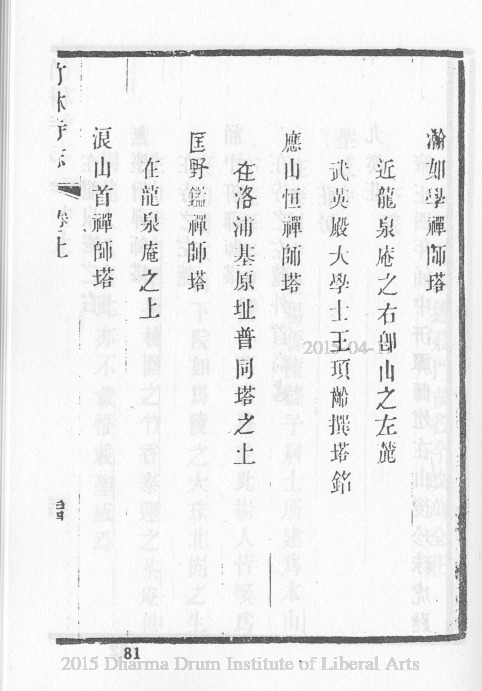 瀚如學禪師塔
近龍泉庵之右卽山之左麓
武英殿大學士王頊齡撰塔銘
應山恒禪師塔
在洛浦基原址普同塔之上
匡野鑑禪師塔
在龍泉庵之上
泿山首禪師塔
竹林寺志 卷上
81
2015-04-1
2015 Dharma Drum Institute of Liberal Arts